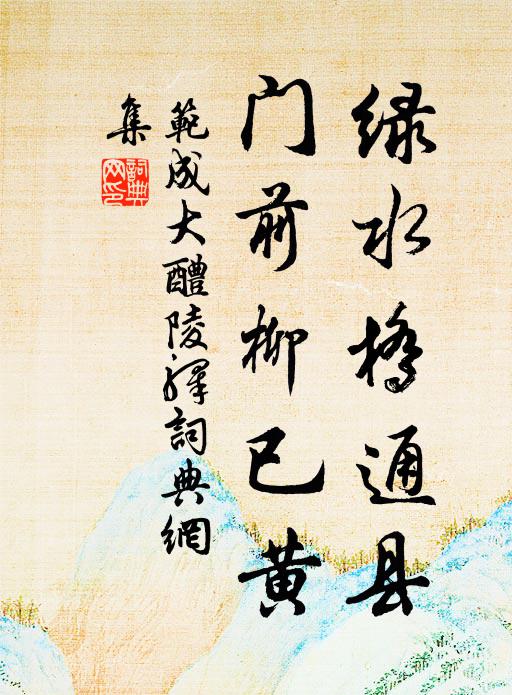 绿水桥通县
门前柳已黄
範成大醴陵驿詞典網
集
詞典
网印